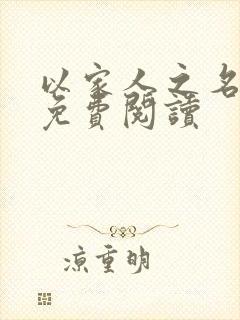 以家人之名
免費閱讀
涼重明